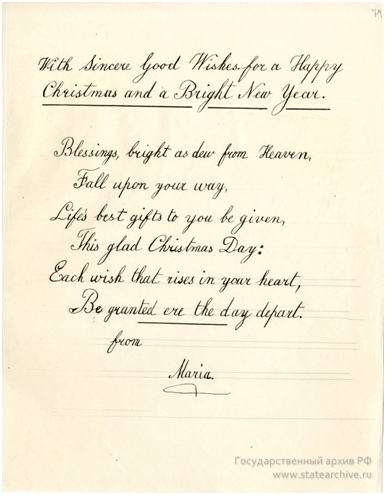 79
With Sincere Good Wishes for a Happy
Christmas and a Bright New Year.
Blessings, bright as dew from Heaven,
Fall upon your way,
Life's best gifts to you be given,
This glad Christmas Day:
Each wish that rises in your heart,
Be granted ere the day depart.
from
Maria.
Государственный архив РФ
www.statearchive.ru